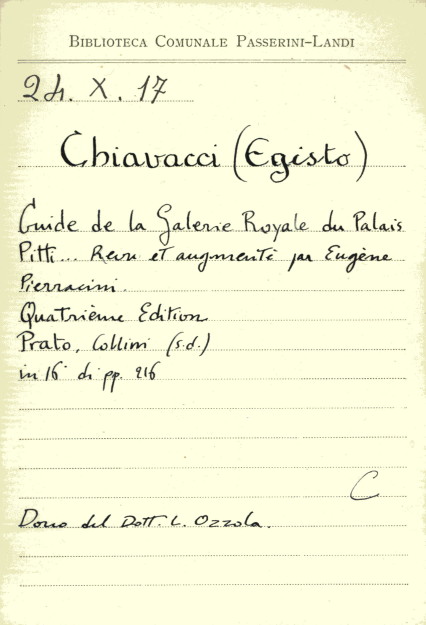 BIBLIOTECA COMUNALE PASSERINI-LANDI
24. X. 17
Chiavacci (Egisto)
Guide de la Galerie Royale du Palais
Pitti... Revu et augmenté par Eugène
Pierracini.
Quatrième Edition
Prato, Collini (s.d.)
in 16° di pp. 216
C
Dono del Dott. L. Ozzola.